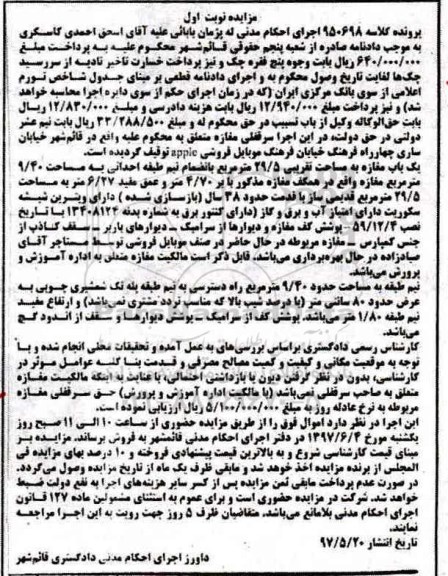 مزایده نوبت اول
پرونده کلاسه ۹۵۰۶۹۸ اجرای احکام مدنی له پژمان بابائی علیه آقای اسحق احمدی کاسگری
به موجب دادنامه صادره از شعبه پنجم حقوقی قائم‌شهر محکوم علیه به پرداخت مبلغ
۶۴۰/۰۰۰/۰۰۰ ریال بابت وجوه پنج فقره چک و نیز پرداخت خسارت تاخیر تادیه از سررسید
چک‌ها لغایت تاریخ وصول محکوم به و اجرای دادنامه قطعی بر مبنای جدول شاخص تورم
اعلامی از سوی بانک مرکزی ایران (که در زمان اجرای حکم از سوی دایره اجرا محاسبه خواهد
شد) و نیز پرداخت مبلغ ۱۲/۹۴۰/۰۰۰ ریال بابت هزینه دادرسی و مبلغ ۱۲/۸۳۰/۰۰۰ ریال
بابت حق‌الوکاله وکیل از باب تسبیب در حق محکوم له و مبلغ ۳۳/۲۸۸/۵۰۰ ریال بابت نیم عشر
دولتی در حق دولت، در این اجرا سرقفلی مغازه متعلق به محکوم علیه واقع در قائم‌شهر خیابان
ساری چهارراه فرهنگ خیابان فرهنگ موبایل فروشی apple توقیف گردیده است.
یک باب مغازه به مساحت تقریبی ۲۹/۵ مترمربع بانضمام نیم طبقه احداثی به مساحت ۹/۴۰
مترمربع مغازه واقع در همکف مغازه مذکور با بر ۴/۷۰ متر و عمق مفید ۶/۲۷ متر به مساحت
۲۹/۵ مترمربع قدیمی ساز با قدمت حدود ۳۸ سال (بازسازی شده) دارای ویترین شیشه
سکوریت دارای امتیاز آب و برق و گاز (دارای کنتور برق به شماره بدنه ۱۳۴۰۸۱۲۴ با تاریخ
نصب ۵۹/۱۲/۴ - پوشش کف مغازه و دیوارها از سرامیک - دیوارهای باربر - سقف کاذب از
جنس کمپارس - مغازه مربوطه در حال حاضر در صنف موبایل فروشی توسط مستاجر آقای
صیادزاده در حال بهره‌برداری می‌باشد. قابل ذکر است مالکیت مغازه متعلق به اداره آموزش و
پرورش می‌باشد.
نیم طبقه به مساحت حدود ۹/۴۰ مترمربع راه دسترسی به نیم طبقه پله تک شمشیری چوبی به
عرض حدود ۸۰ سانتی متر (با درصد شیب بالا که مناسب تردد مشتری نمی‌باشد) و ارتفاع مفید
نیم طبقه ۱/۸۰ متر می‌باشد. پوشش کف از سرامیک - پوشش دیوارها و سقف از اندود گچ
می‌باشد.
کارشناس رسمی دادگستری براساس بررسی‌های به عمل آمده و تحقیقات محلی انجام شده و با
توجه به موقعیت مکانی و کیفیت و کمیت مصالح مصرفی و قدمت بنا کلیه عوامل موثر در
کارشناسی، بدون در نظر گرفتن دیون یا بازداشتی احتمالی، با عنایت به اینکه مالکیت مغازه
متعلق به صاحب سرقفلی نمی‌باشد (با مالکیت اداره آموزش و پرورش) حق سرقفلی مغازه
مربوطه به نرخ عادله روز به مبلغ ۵/۱۰۰/۰۰۰/۰۰۰ ریال ارزیابی نموده است.
این اجرا در نظر دارد اموال فوق را از طریق مزایده حضوری از ساعت ۱۰ الی ۱۱ صبح روز
یکشنبه مورخ ۱۳۹۷/۶/۴ در دفتر اجرای احکام مدنی قائمشهر به فروش برساند. مزایده بر
مبنای قیمت کارشناسی شروع و به بالاترین قیمت پیشنهادی فروخته و ۱۰ درصد بهای مزایده فی
المجلس از برنده مزایده اخذ خواهد شد و مابقی ظرف یک ماه از تاریخ مزایده وصول می‌گردد.
در صورت عدم پرداخت مابقی ثمن مزایده پس از کسر سایر هزینه‌های اجرا به نفع دولت ضبط
خواهد شد. شرکت در مزایده حضوری است و برای عموم به استثنای مشمولین ماده ۱۲۷ قانون
اجرای احکام مدنی بلامانع می‌باشد. متقاضیان ظرف ۵ روز جهت رویت به این اجرا مراجعه
نمایند.
تاریخ انتشار ۹۷/۵/۲۰
داورز اجرای احکام مدنی دادگستری قائم‌شهر